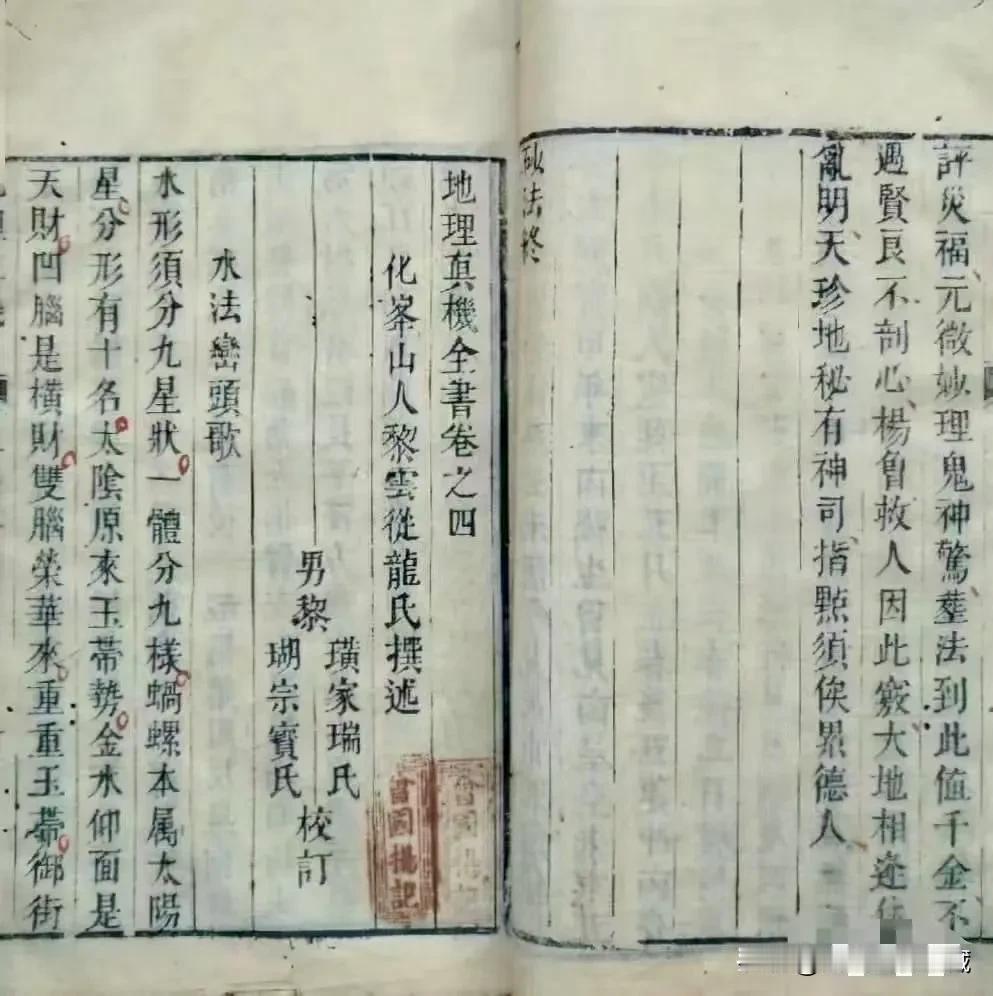 評災福元微妙理鬼神驚塟法到此值千金不
遇賢良不剖心楊曾救人因此竅大地相逢任
亂明天珍地秘有神司指點須俟累德人
砂法終
地理真機全書卷之四
化峯山人黎雲從龍氏撰述
男黎
璜家瑞氏
瑚宗寳氏
校訂
曾國楊記
水法巒頭歌
水形須分九星狀一體分九樣蝸螺本属太陽
星分形有十名太陰原來玉帶勢金水仰面是
天財凹腦是橫財雙腦榮華來重重玉帶御街
藏